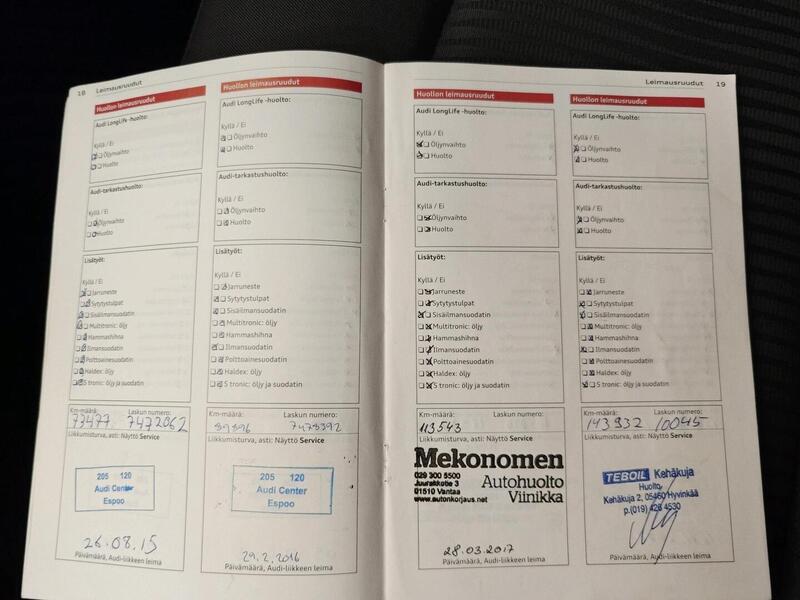 18 Leimausruudut
Huollon leimausruudut
Audi LongLife -huolto:
Kyllä / Ei
Öljynvaihto
Huolto
Audi-tarkastushuolto:
Kyllä / Ei
Öljynvaihto
Huolto
Lisätyöt:
Kyllä / Ei
Jarruneste
Sytytystulpat
Sisäilmansuodatin
Multitronic: öljy
Hammashihna
Ilmansuodatin
Polttoainesuodatin
Haldex: öljy
S tronic: öljy ja suodatin
Km-määrä: Laskun numero:
73477 7472062
Liikkumisturva, asti: Näyttö Service
205 120
Audi Center
Espoo
26.08.15
Päivämäärä, Audi-liikkeen leima
Huollon leimausruudut
Audi LongLife -huolto:
Kyllä / Ei
Öljynvaihto
Huolto
Audi-tarkastushuolto:
Kyllä / Ei
Öljynvaihto
Huolto
Lisätyöt:
Kyllä / Ei
Jarruneste
Sytytystulpat
Sisäilmansuodatin
Multitronic: öljy
Hammashihna
Ilmansuodatin
Polttoainesuodatin
Haldex: öljy
S tronic: öljy ja suodatin
Km-määrä: Laskun numero:
89896 7478392
Liikkumisturva, asti: Näyttö Service
205 120
Audi Center
Espoo
29.2.2016
Päivämäärä, Audi-liikkeen leima
Leimausruudut 19
Huollon leimausruudut
Audi LongLife -huolto:
Kyllä / Ei
Öljynvaihto
Huolto
Audi-tarkastushuolto:
Kyllä / Ei
Öljynvaihto
Huolto
Lisätyöt:
Kyllä / Ei
Jarruneste
Sytytystulpat
Sisäilmansuodatin
Multitronic: öljy
Hammashihna
Ilmansuodatin
Polttoainesuodatin
Haldex: öljy
S tronic: öljy ja suodatin
Km-määrä: Laskun numero:
113543
Liikkumisturva, asti: Näyttö Service
Mekonomen
029 300 5500
Juurakkotie 3
01510 Vantaa
www.autonkorjaus.net
Autohuolto
Viinikka
28.03.2017
Päivämäärä, Audi-liikkeen leima
Huollon leimausruudut
Audi LongLife -huolto:
Kyllä / Ei
Öljynvaihto
Huolto
Audi-tarkastushuolto:
Kyllä / Ei
Öljynvaihto
Huolto
Lisätyöt:
Kyllä / Ei
Jarruneste
Sytytystulpat
Sisäilmansuodatin
Multitronic: öljy
Hammashihna
Ilmansuodatin
Polttoainesuodatin
Haldex: öljy
S tronic: öljy ja suodatin
Km-määrä: Laskun numero:
143932 10045
Liikkumisturva, asti: Näyttö Service
TEBOIL Kehäkuja
Huolto
Kehäkuja 2, 05460 Hyvinkää
p.(019) 426 4530
Päivämäärä, Audi-liikkeen leima